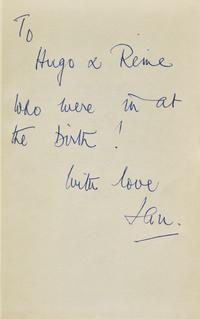 To
Hugo & Reine
who were in at
the Birth!
With love
Ian.